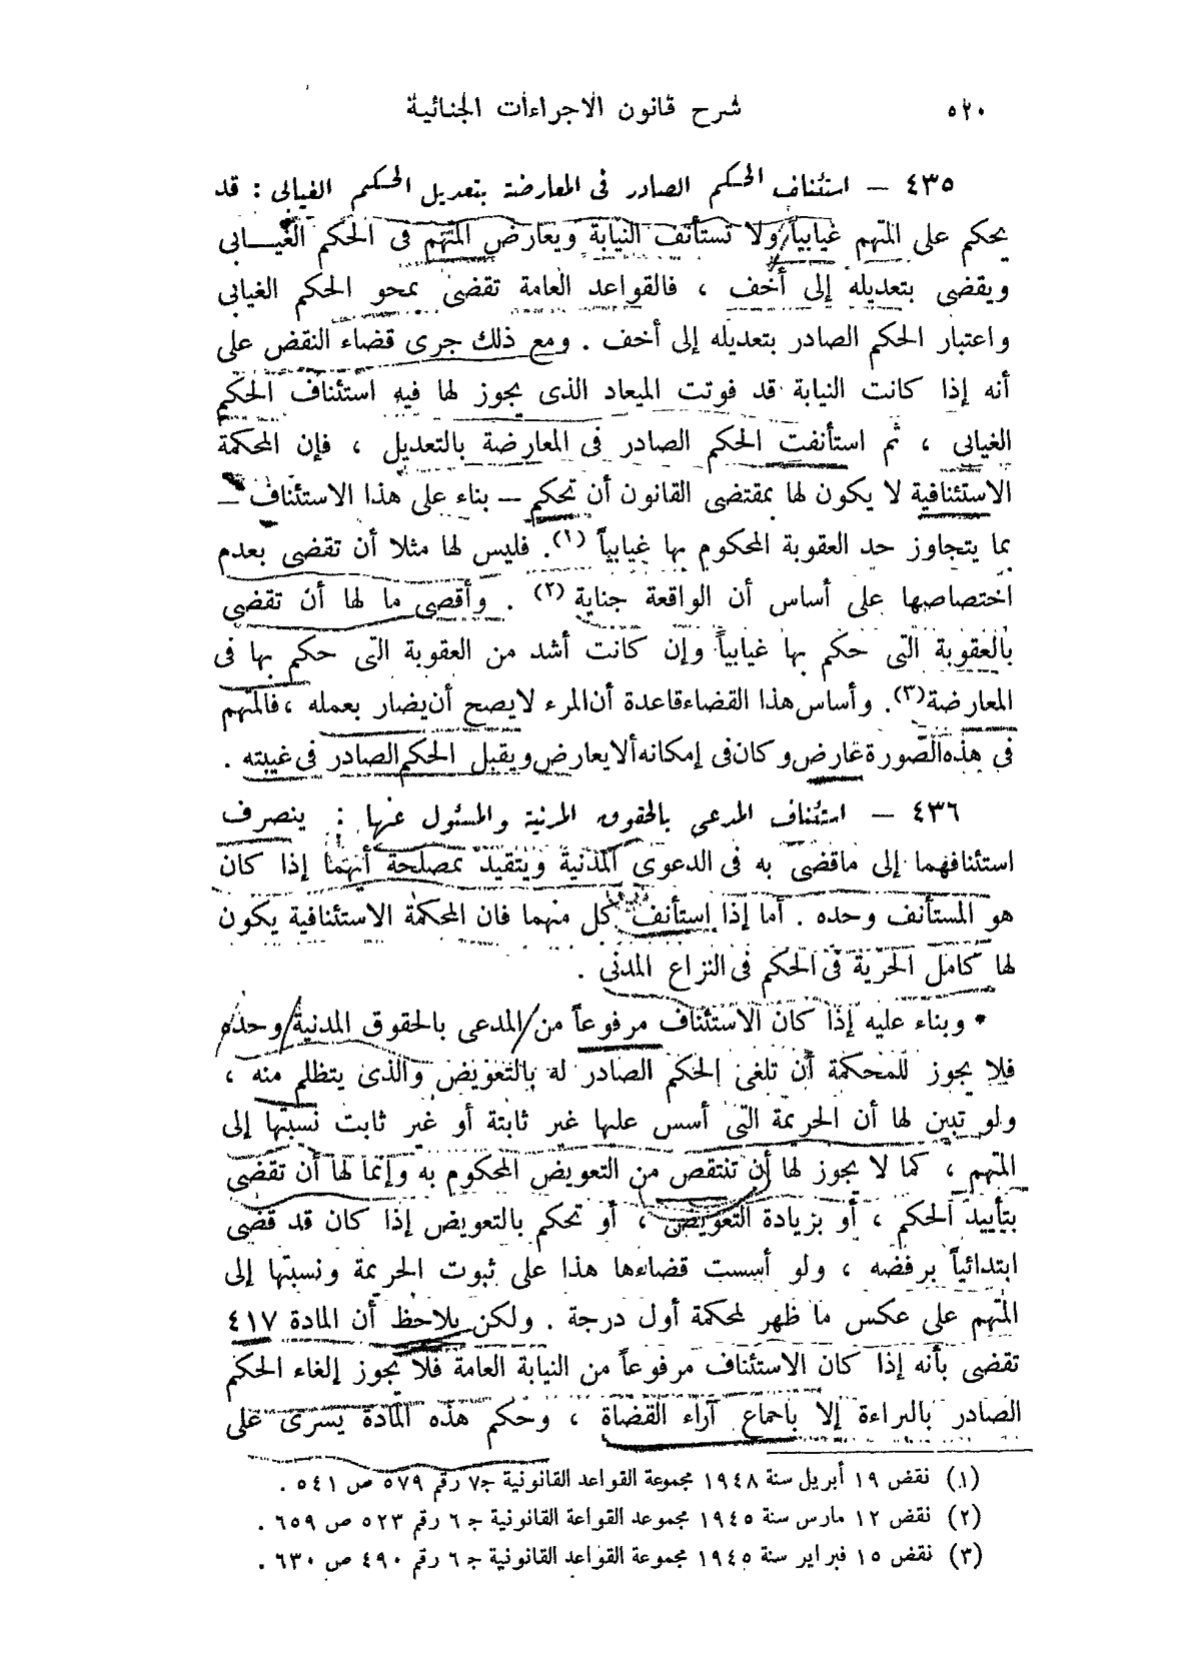 ٥٢٠
شرح قانون الاجراءات الجنائية
٤٣٥ — استئناف الحكم الصادر فى المعارضة بتعديل الحكم الغيابى : قد
يحكم على المتهم غيابياً ولا تستأنف النيابة ويعارض المتهم فى الحكم الغيابى
ويقضى بتعديله إلى أخف ، فالقواعد العامة تقضى بمحو الحكم الغيابى
واعتبار الحكم الصادر بتعديله إلى أخف . ومع ذلك جرى قضاء النقض على
أنه إذا كانت النيابة قد فوتت الميعاد الذى يجوز لها فيه استئناف الحكم
الغيابى ، ثم استأنفت الحكم الصادر فى المعارضة بالتعديل ، فإن المحكمة
الاستئنافية لا يكون لها بمقتضى القانون أن تحكم — بناء على هذا الاستئناف —
بما يتجاوز حد العقوبة المحكوم بها غيابياً (١). فليس لها مثلا أن تقضى بعدم
اختصاصها على أساس أن الواقعة جناية (٢) . وأقصى ما لها أن تقضى
بالعقوبة التى حكم بها غيابياً وإن كانت أشد من العقوبة التى حكم بها فى
المعارضة (٣). وأساس هذا القضاء قاعدة أن المرء لا يصح أن يضار بعمله ، فالمتهم
فى هذه الصورة عارض وكان فى إمكانه ألا يعارض ويقبل الحكم الصادر فى غيبته .
٤٣٦ — استئناف المدعى بالحقوق المدنية والمسئول عنها : ينصرف
استئنافهما إلى ماقضى به فى الدعوى المدنية ويتقيد بمصلحة أيهما إذا كان
هو المستأنف وحده . أما إذا استأنف كل منهما فان المحكمة الاستئنافية يكون
لها كامل الحرية فى الحكم فى النزاع المدنى .
• وبناء عليه إذا كان الاستئناف مرفوعاً من المدعى بالحقوق المدنية وحده
فلا يجوز للمحكمة أن تلغى الحكم الصادر له بالتعويض والذى يتظلم منه ،
ولو تبين لها أن الجريمة التى أسس عليها غير ثابتة أو غير ثابت نسبتها إلى
المتهم ، كما لا يجوز لها أن تنتقص من التعويض المحكوم به وإنما لها أن تقضى
بتأييد الحكم ، أو بزيادة التعويض ، أو تحكم بالتعويض إذا كان قد قضى
ابتدائياً برفضه ، ولو أسست قضاءها هذا على ثبوت الجريمة ونسبتها إلى
المتهم على عكس ما ظهر لمحكمة أول درجة . ولكن يلاحظ أن المادة ٤١٧
تقضى بأنه إذا كان الاستئناف مرفوعاً من النيابة العامة فلا يجوز إلغاء الحكم
الصادر بالبراءة إلا باجماع آراء القضاة ، وحكم هذه المادة يسرى على
(١) نقض ١٩ أبريل سنة ١٩٤٨ مجموعة القواعد القانونية ج٧ رقم ٥٧٩ ص ٥٤١ .
(٢) نقض ١٢ مارس سنة ١٩٤٥ مجموعد القواعة القانونية ج ٦ رقم ٥٢٣ ص ٦٥٩ .
(٣) نقض ١٥ فبراير سنة ١٩٤٥ مجموعة القواعد القانونية ج ٦ رقم ٤٩٠ ص ٦٣٠ .